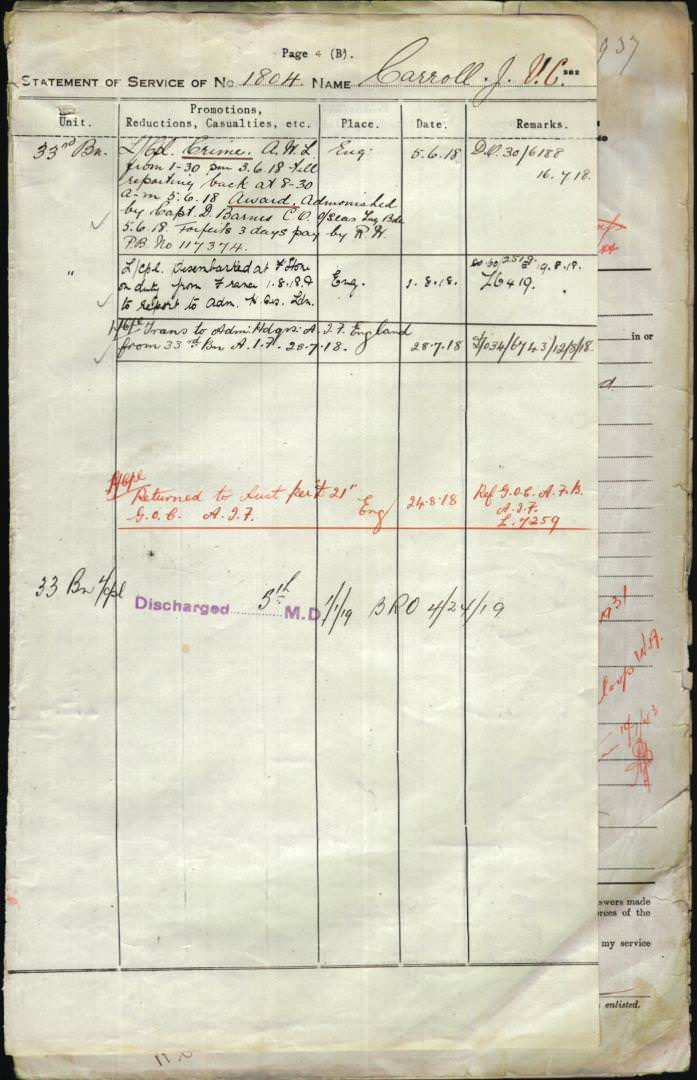 Page 4 (B).
STATEMENT OF SERVICE OF No 1804. NAME Carroll. J. V.C.
Unit.
Promotions,
Reductions, Casualties, etc.
Place.
Date.
Remarks.
33rd Bn. L/Cpl. Crime. A.W.L Eng. 5.6.18 D.O. 30/6188
from 1-30 pm 3.6.18 till 16.7.18.
reporting back at 8-30
a-m 5.6.18 Award, Admonished
by Capt. D. Barnes C.O. O/seas Trg Bde
5.6.18. Forfeits 3 days pay by R.W.
P.B. No 117374.
" L/cpl. Disembarked at F'Stone 19.8.18.
on duty from France 1.8.18. Eng. 1.8.18. L6419.
to report to Adm. H Qrs. Ldn.
L/Cpl Trans to Adm: Hdqrs. A.I.F. England
from 33rd Bn A.I.F. 28.7.18. 28.7.18 /12/8/18.
L/Cpl
Returned to Aust per "t 21" Eng 24.8.18 Ref G.O.C. A.F.B.
G.O.C. A.I.F. A.I.F.
L.7259
33 Bn L/Cpl Discharged 5th M.D. 1/1/19 BRO 4/24/19
937
in or
W.A.
swers made
orces of the
my service
enlisted.